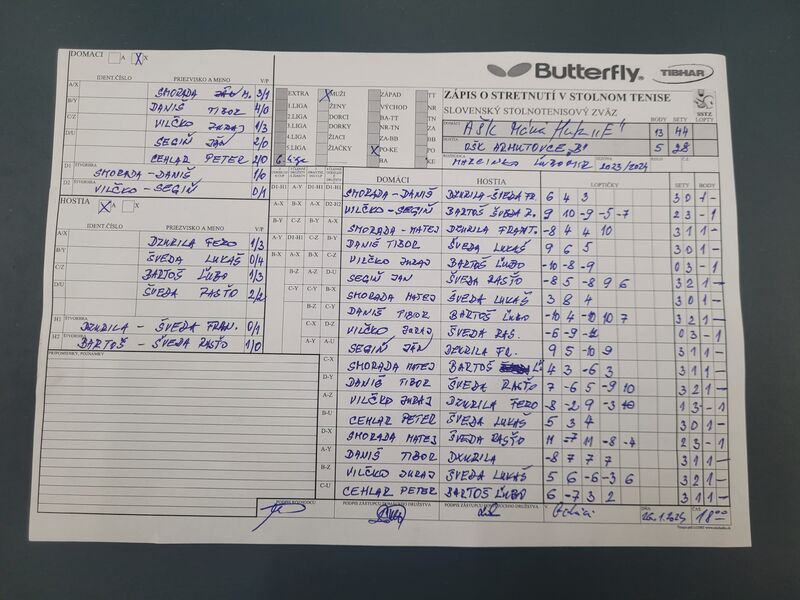 DOMÁCI A X
IDENT.ČÍSLO PRIEZVISKO A MENO V/P
A/X SMORADA M. 3/1
B/Y DANIŠ TIBOR 4/0
C/Z VILČKO JURAJ 1/3
D/U SEGIŇ JÁN 2/0
CEHLAR PETER 2/0
D1 ŠTVORHRA
SMORADA - DANIŠ 1/0
D2 ŠTVORHRA
VILČKO - SEGIŇ 0/1
HOSTIA X X
IDENT.ČÍSLO PRIEZVISKO A MENO V/P
A/X DZURILA FERO 1/3
B/Y ŠVEDA LUKÁŠ 0/4
C/Z BARTOŠ ĽUBO 1/3
D/U ŠVEDA RASŤO 2/2
H1 ŠTVORHRA
DZURILA - ŠVEDA FRAN. 0/1
H2 ŠTVORHRA
BARTOŠ - ŠVEDA RASŤO 1/0
PRIPOMIENKY, POZNÁMKY
EXTRA X MUŽI ZÁPAD TT
1.LIGA ŽENY VÝCHOD NR
2.LIGA DORCI BA-TT TN
3.LIGA DORKY NR-TN ZA
4.LIGA ŽIACI ZA-BB BB
5.LIGA ŽIAČKY X PO-KE PO
6. liga BA KE
Butterfly TIBHAR
ZÁPIS O STRETNUTÍ V STOLNOM TENISE
SLOVENSKÝ STOLNOTENISOVÝ ZVÄZ
SSTZ
BODY SETY LOPTY
DOMÁCI AŠK 13 44
HOSTIA OŠK "B" 5 28
MARCINKO ĽUBOMIR 2023/2024
DOMÁCI HOSTIA LOPTIČKY SETY BODY
SMORADA - DANIŠ DZURILA - ŠVEDA FR. 6 4 3 3 0 1 -
VILČKO - SEGIŇ BARTOŠ ŠVEDA R. 9 10 -9 -5 -7 2 3 - 1
SMORADA - MATEJ DZURILA FRANT. -8 4 4 10 3 1 1 -
DANIŠ TIBOR ŠVEDA LUKÁŠ 9 6 5 3 0 1 -
VILČKO JURAJ BARTOŠ ĽUBO -10 -8 -9 0 3 - 1
SEGIŇ JAN ŠVEDA RASŤO -8 5 -8 9 6 3 2 1 -
SMORADA MATEJ ŠVEDA LUKÁŠ 3 8 4 3 0 1 -
DANIŠ TIBOR BARTOŠ ĽUBO -10 4 -10 10 7 3 2 1 -
VILČKO JURAJ ŠVEDA RAS. -6 -9 0 3 - 1
SEGIŇ JÁN DZURILA FR. 9 5 -10 9 3 1 1 -
SMORADA MATEJ BARTOŠ Ľ. 4 3 -6 3 3 1 1 -
DANIŠ TIBOR ŠVEDA RASŤO 7 -6 5 -9 10 3 2 1 -
VILČKO JURAJ DZURILA FERO -8 -2 9 -3 1 3 - 1
CEHLAR PETER ŠVEDA LUKÁŠ 5 3 4 3 0 1 -
SMORADA MATEJ ŠVEDA RASŤO 11 -7 11 -8 -4 2 3 - 1
DANIŠ TIBOR DZURILA -8 7 7 7 3 1 1 -
VILČKO JURAJ ŠVEDA LUKÁŠ 5 6 -6 -3 6 3 2 1 -
CEHLAR PETER BARTOŠ ĽUBO 6 -7 3 2 3 1 1 -
PODPIS ROZHODCU PODPIS ZÁSTUPCU DOMÁCEHO DRUŽSTVA V DŇA ČAS 18 00